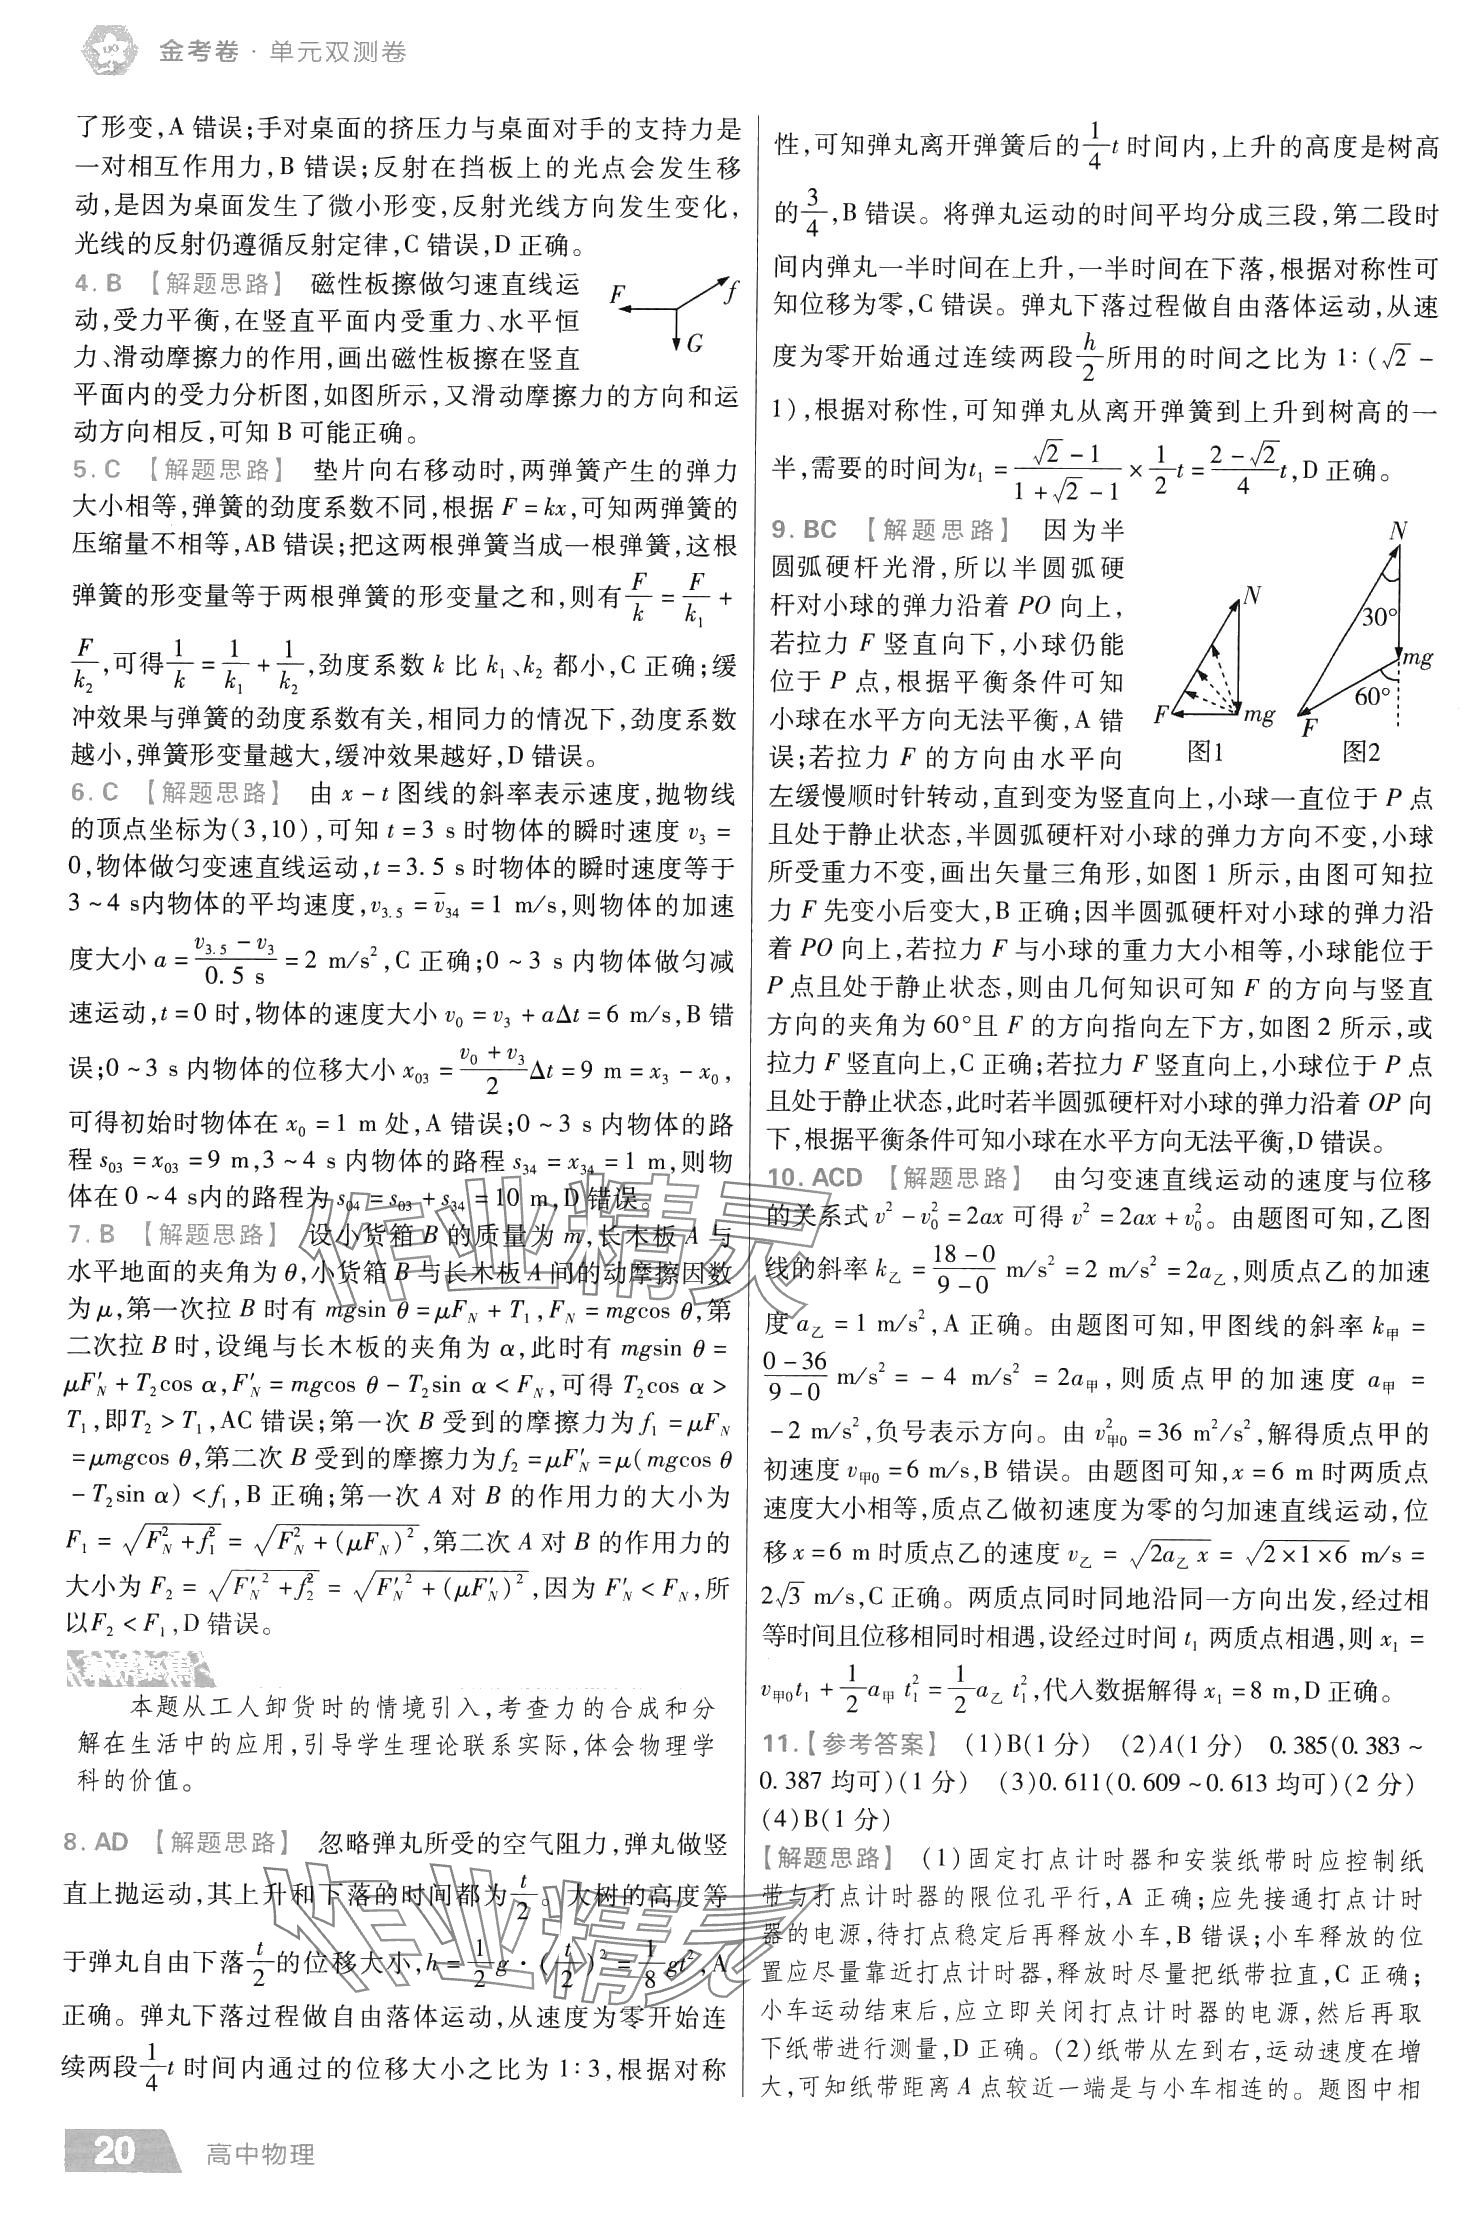 金考卷·单元双测卷
了形变,A 错误;手对桌面的挤压力与桌面对手的支持力是
一对相互作用力,B 错误;反射在挡板上的光点会发生移
动,是因为桌面发生了微小形变,反射光线方向发生变化,
光线的反射仍遵循反射定律,C 错误,D 正确。
4. B 【解题思路】 磁性板擦做匀速直线运
动,受力平衡,在竖直平面内受重力、水平恒
力、滑动摩擦力的作用,画出磁性板擦在竖直
平面内的受力分析图,如图所示,又滑动摩擦力的方向和运
动方向相反,可知 B 可能正确。
F f G
5. C 【解题思路】 垫片向右移动时,两弹簧产生的弹力
大小相等,弹簧的劲度系数不同,根据 F=kx,可知两弹簧的
压缩量不相等,AB 错误;把这两根弹簧当成一根弹簧,这根
弹簧的形变量等于两根弹簧的形变量之和,则有 F/k = F/k₁ +
F/k₂,可得 1/k = 1/k₁ + 1/k₂,劲度系数 k 比 k₁、k₂ 都小,C 正确;缓
冲效果与弹簧的劲度系数有关,相同力的情况下,劲度系数
越小,弹簧形变量越大,缓冲效果越好,D 错误。
6. C 【解题思路】 由 x-t 图线的斜率表示速度,抛物线
的顶点坐标为(3,10),可知 t=3 s 时物体的瞬时速度 v₃ =
0,物体做匀变速直线运动,t=3.5 s 时物体的瞬时速度等于
3~4 s内物体的平均速度,v₃.₅ = v̄₃₄ = 1 m/s,则物体的加速
度大小 a = (v₃.₅ - v₃)/0.5 s = 2 m/s²,C 正确;0~3 s 内物体做匀减
速运动,t=0 时,物体的速度大小 v₀ = v₃ + aΔt = 6 m/s,B 错
误;0~3 s 内物体的位移大小 x₀₃ = (v₀ + v₃)/2 Δt = 9 m = x₃ - x₀,
可得初始时物体在 x₀ = 1 m 处,A 错误;0~3 s 内物体的路
程 s₀₃ = x₀₃ = 9 m,3~4 s 内物体的路程 s₃₄ = x₃₄ = 1 m,则物
体在 0~4 s内的路程为 s₀₄ = s₀₃ + s₃₄ = 10 m,D 错误。
7. B 【解题思路】 设小货箱 B 的质量为 m,长木板 A 与
水平地面的夹角为 θ,小货箱 B 与长木板 A 间的动摩擦因数
为 μ,第一次拉 B 时有 mgsin θ = μF_N + T₁,F_N = mgcos θ,第
二次拉 B 时,设绳与长木板的夹角为 α,此时有 mgsin θ =
μF′_N + T₂cos α,F′_N = mgcos θ - T₂sin α < F_N,可得 T₂cos α >
T₁,即T₂ > T₁,AC 错误;第一次 B 受到的摩擦力为 f₁ = μF_N
= μmgcos θ,第二次 B 受到的摩擦力为 f₂ = μF′_N = μ(mgcos θ
- T₂sin α) < f₁,B 正确;第一次 A 对 B 的作用力的大小为
F₁ = √(F_N² + f₁²) = √(F_N² + (μF_N)²),第二次 A 对 B 的作用力的
大小为 F₂ = √(F′_N² + f₂²) = √(F′_N² + (μF′_N)²),因为 F′_N < F_N,所
以F₂ < F₁,D 错误。
本题从工人卸货时的情境引入,考查力的合成和分
解在生活中的应用,引导学生理论联系实际,体会物理学
科的价值。
8. AD 【解题思路】 忽略弹丸所受的空气阻力,弹丸做竖
直上抛运动,其上升和下落的时间都为 t/2。大树的高度等
于弹丸自由下落 t/2 的位移大小,h = 1/2 g·(t/2)² = 1/8 gt²,A
正确。弹丸下落过程做自由落体运动,从速度为零开始连
续两段 1/4 t 时间内通过的位移大小之比为 1:3,根据对称
性,可知弹丸离开弹簧后的 1/4 t 时间内,上升的高度是树高
的 3/4,B 错误。将弹丸运动的时间平均分成三段,第二段时
间内弹丸一半时间在上升,一半时间在下落,根据对称性可
知位移为零,C 错误。弹丸下落过程做自由落体运动,从速
度为零开始通过连续两段 h/2 所用的时间之比为 1:(√2 -
1),根据对称性,可知弹丸从离开弹簧到上升到树高的一
半,需要的时间为t₁ = (√2-1)/(1+√2-1) × 1/2 t = (2-√2)/4 t,D 正确。
9. BC 【解题思路】 因为半
圆弧硬杆光滑,所以半圆弧硬
杆对小球的弹力沿着 PO 向上,
若拉力 F 竖直向下,小球仍能
位于 P 点,根据平衡条件可知
小球在水平方向无法平衡,A 错
误;若拉力 F 的方向由水平向
N F mg 图1
N 30° mg 60° F 图2
左缓慢顺时针转动,直到变为竖直向上,小球一直位于 P 点
且处于静止状态,半圆弧硬杆对小球的弹力方向不变,小球
所受重力不变,画出矢量三角形,如图 1 所示,由图可知拉
力 F 先变小后变大,B 正确;因半圆弧硬杆对小球的弹力沿
着 PO 向上,若拉力 F 与小球的重力大小相等,小球能位于
P 点且处于静止状态,则由几何知识可知 F 的方向与竖直
方向的夹角为 60°且 F 的方向指向左下方,如图 2 所示,或
拉力 F 竖直向上,C 正确;若拉力 F 竖直向上,小球位于 P 点
且处于静止状态,此时若半圆弧硬杆对小球的弹力沿着 OP 向
下,根据平衡条件可知小球在水平方向无法平衡,D 错误。
10. ACD 【解题思路】 由匀变速直线运动的速度与位移
的关系式 v² - v₀² = 2ax 可得 v² = 2ax + v₀²。由题图可知,乙图
线的斜率 k乙 = (18-0)/(9-0) m/s² = 2 m/s² = 2a乙,则质点乙的加速
度 a乙 = 1 m/s²,A 正确。由题图可知,甲图线的斜率 k甲 =
(0-36)/(9-0) m/s² = -4 m/s² = 2a甲,则质点甲的加速度 a甲 =
-2 m/s²,负号表示方向。由 v²甲0 = 36 m²/s²,解得质点甲的
初速度 v甲0 = 6 m/s,B 错误。由题图可知,x=6 m 时两质点
速度大小相等,质点乙做初速度为零的匀加速直线运动,位
移 x=6 m 时质点乙的速度 v乙 = √(2a乙x) = √(2×1×6) m/s =
2√3 m/s,C 正确。两质点同时同地沿同一方向出发,经过相
等时间且位移相同时相遇,设经过时间 t₁ 两质点相遇,则 x₁ =
v甲0t₁ + 1/2 a甲 t₁² = 1/2 a乙 t₁²,代入数据解得 x₁ = 8 m,D 正确。
11.【参考答案】 (1)B(1 分) (2)A(1 分) 0.385(0.383~
0.387 均可)(1 分) (3)0.611(0.609~0.613 均可)(2 分)
(4)B(1 分)
【解题思路】 (1)固定打点计时器和安装纸带时应控制纸
带与打点计时器的限位孔平行,A 正确;应先接通打点计时
器的电源,待打点稳定后再释放小车,B 错误;小车释放的位
置应尽量靠近打点计时器,释放时尽量把纸带拉直,C 正确;
小车运动结束后,应立即关闭打点计时器的电源,然后再取
下纸带进行测量,D 正确。(2)纸带从左到右,运动速度在增
大,可知纸带距离 A 点较近一端是与小车相连的。题图中相
作业精灵
作业精灵
20 高中物理